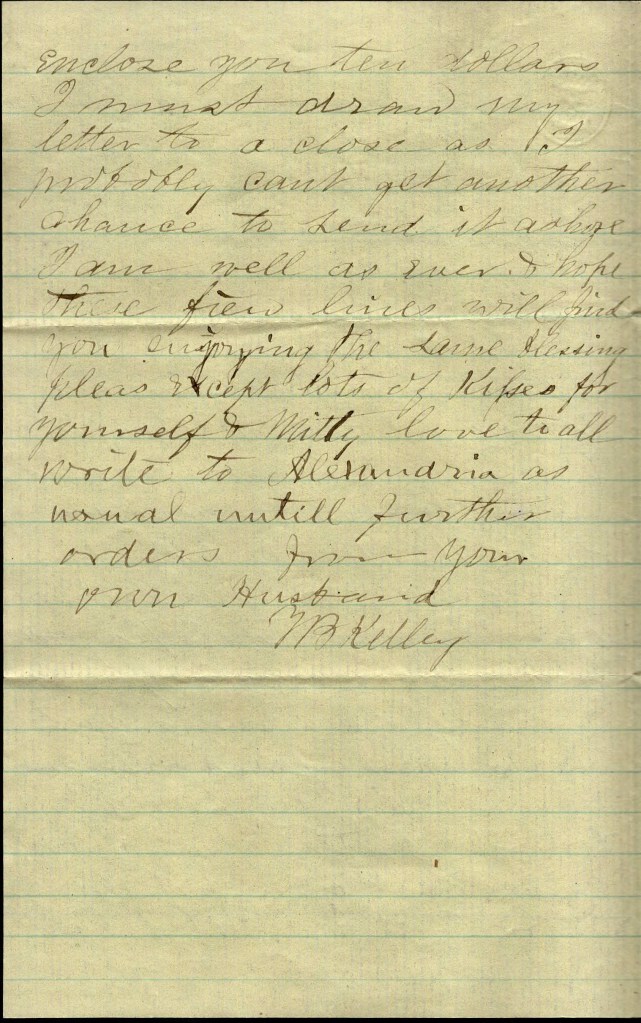 enclose you ten dollars
I must draw my
letter to a close as I
probobly cant get another
chance to send it
I am well as ever & hope
these few lines will find
you enjoying the same blessing
pleas except lots of Kisses for
yourself & Mitty love to all
write to Alexandria as
usual untill further
orders from your
own Husband
Kelley